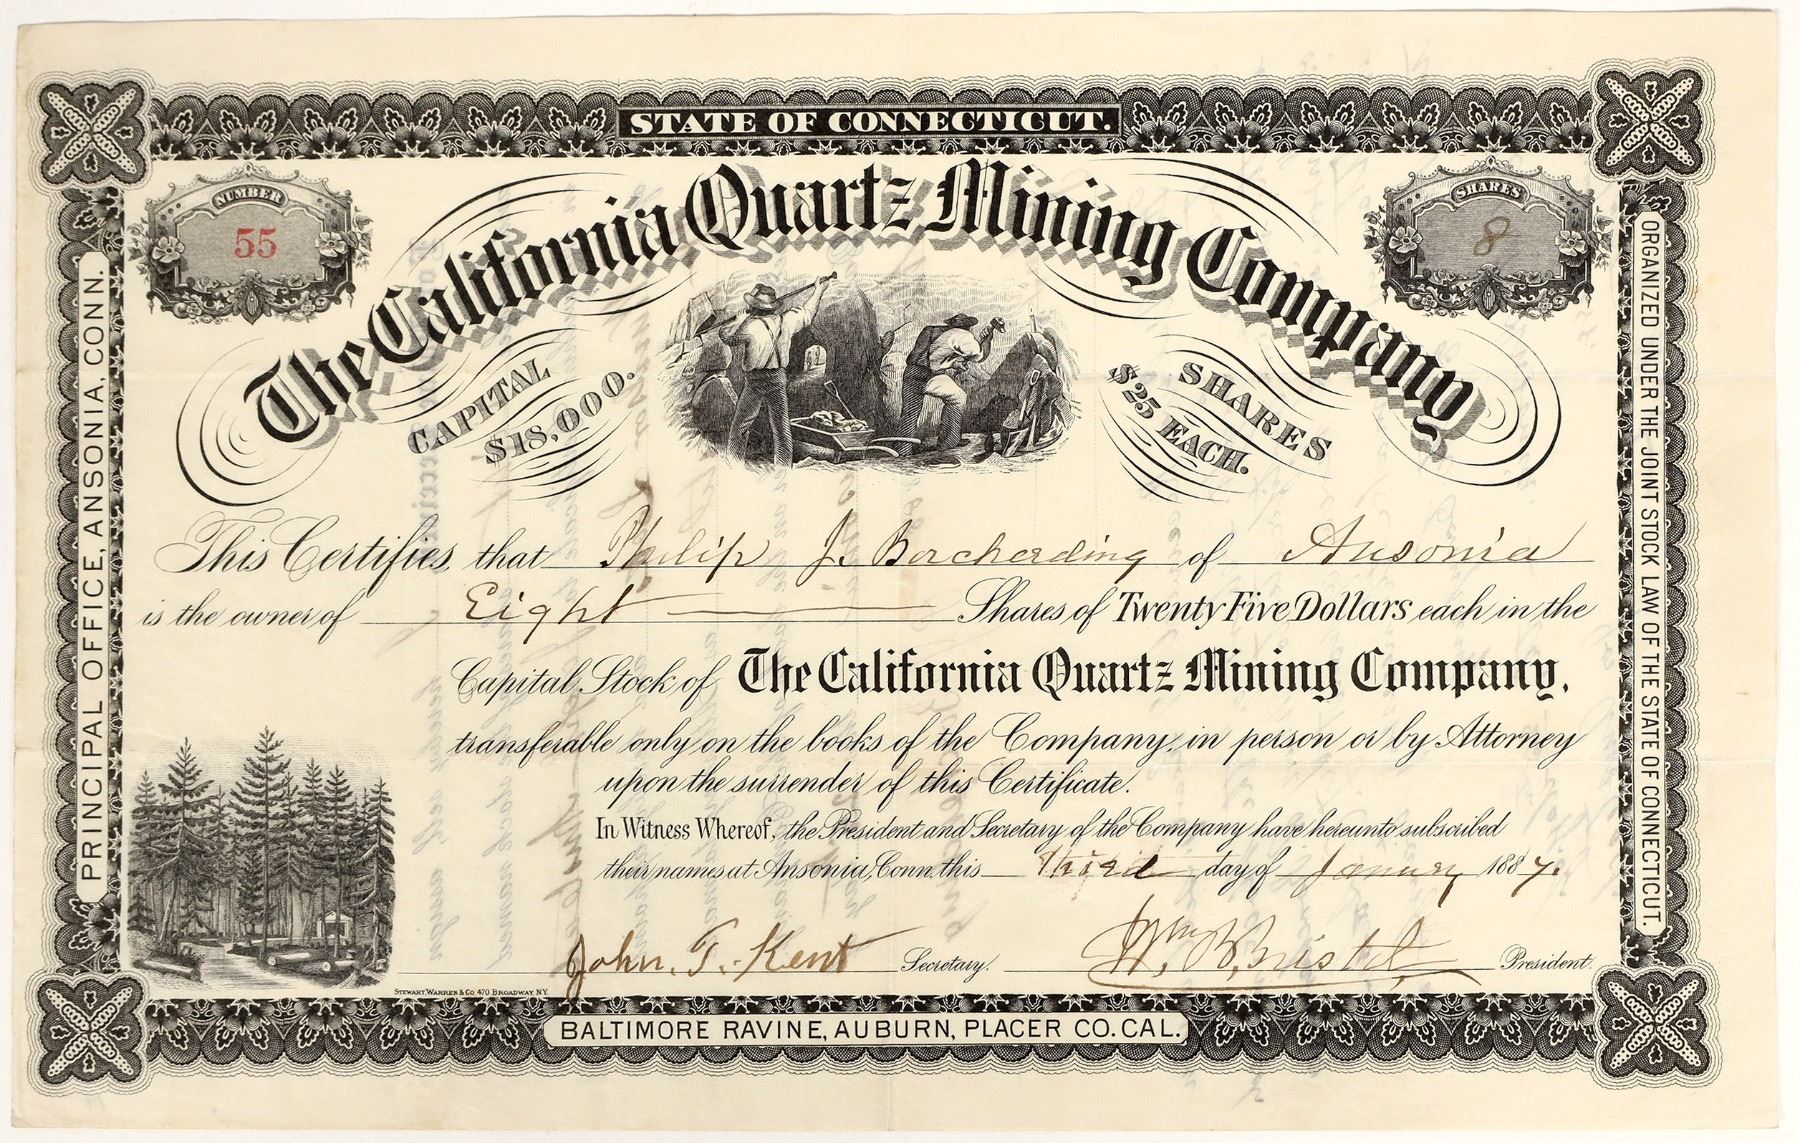 STATE OF CONNECTICUT.
NUMBER
55
SHARES
8
The California Quartz Mining Company
CAPITAL
$18,000.
SHARES
$25 EACH.
This Certifies that Philip J. Borcherding of Ansonia
is the owner of Eight Shares of Twenty Five Dollars each in the
Capital Stock of The California Quartz Mining Company,
transferable only on the books of the Company, in person or by Attorney
upon the surrender of this Certificate.
In Witness Whereof, the President and Secretary of the Company have hereunto subscribed
their names at Ansonia, Conn. this Third day of January 1887.
John. T. Kent Secretary. Wm. B. Bristol, President.
STEWART, WARREN & CO 470 BROADWAY, N.Y.
BALTIMORE RAVINE, AUBURN, PLACER CO. CAL.
PRINCIPAL OFFICE, ANSONIA, CONN.
ORGANIZED UNDER THE JOINT STOCK LAW OF THE STATE OF CONNECTICUT.